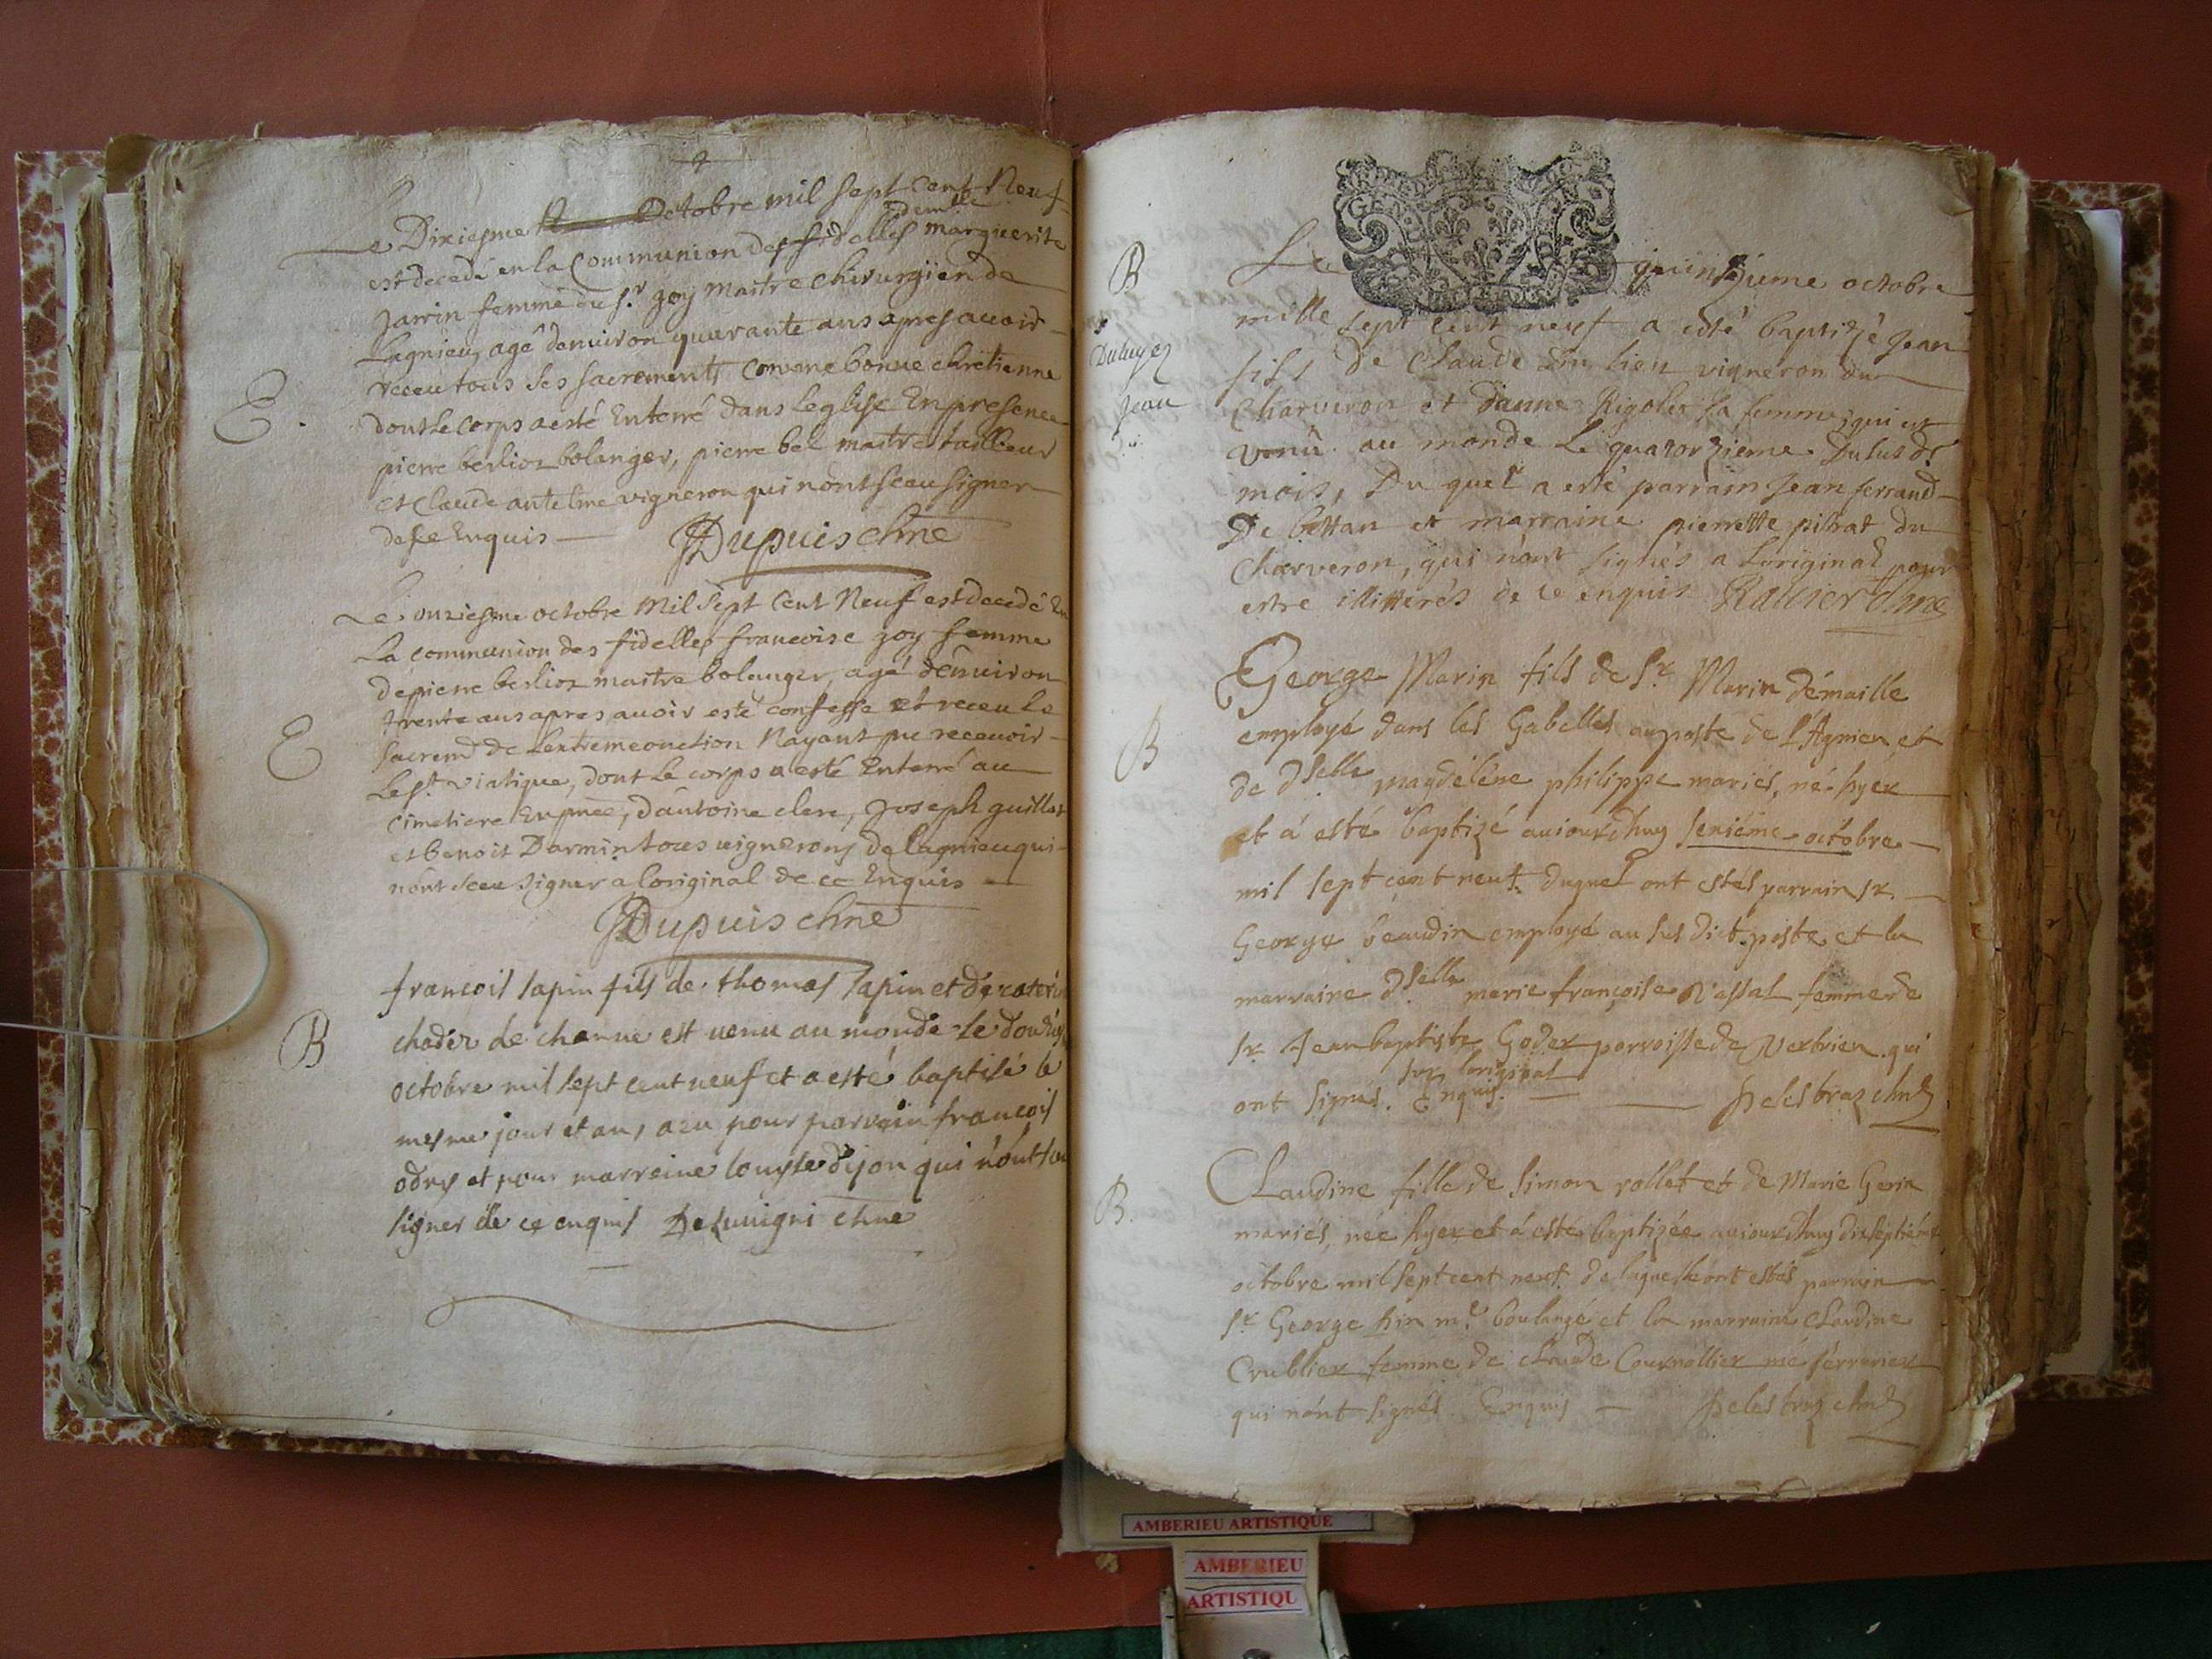 Le Dixiesme Octobre mil sept cent Neuf
est decedé en la Communion des fidelles demlle marguerite
Jarrin femme du sr. goy maitre chirurgien de
Lagnieu, agé denuiron quarante ans apres auoir
receu tous ses sacrements comme bonne chrêtienne
dont Le corps a esté Enterré dans Leglise En presence
pierre berlioz bolanger, pierre bel maitre tailleur
et Claude antelme vigneron qui n'ont sceu signer
de ce Enquis Dupuis chne
E.
Le onziesme octobre Mil Sept Cent Neuf est decedé En
La communion des fidelles francoise goy femme
de pierre berlioz maitre bolanger, agé denuiron
trente ans apres auoir esté confesse et receu le
sacremt de Lextremeonction Nayant pu receuoir
E
Le st. viatique, dont Le corps a esté Enterré au
cimetiere En pnce, d'antoine clere, Joseph guillot
et benoit Darmin tous uignerons de lagnieu qui
nont sceu signer a loriginal de ce Enquis
Dupuis chne
francois sapin fils de thomas sapin et de
B
de charue est uenu au monde le
octobre mil sept cent neuf et a esté baptisé le
mesme jour et an, a eu pour parrain francois
odry et pour marreine louyse dijon qui n'ont
signer de ce enquis chne
B
Le quinzieme octobre
mille sept cent neuf a esté baptizé Jean
Jean
fils de Claude vigneron du
Charveron et danne Rigolet sa femme, qui est
venu au monde Le quatorzieme Du susdt
mois, Du quel a esté parrain Jean ferrand
De bettan et marraine pierrette pitrat du
Charveron, qui nont signés a Loriginal pour
estre illitterés de ce enquis Ravier chne
George Marin fils de Sr. Marin démaille
employé dans les Gabelles au poste de LAgnieu et
B
de dselle magdelêne philippe mariés, né hyer
et á esté baptizé auiourdhuy seziéme octobre
mil sept cent neuf. duquel ont estés parrain sr.
George beaudin employé au sus dict poste et la
marraine dselle marie françoise Vassal femme de
sr. Jean baptiste Goder parroisse de Vertrieu qui
ont signés. sur loriginal Enquis. Delesbraz chne
B.
Claudine fille de Simon rollet et de Marie Gerin
mariés, née hyer et á esté baptizée auiourdhuy dixseptiéme
octobre mil sept cent neuf. de laquelle ont estés parrain
sr. George hin me. boulangé et la marraine Claudine
Crublier femme de claude Cournollier
qui nónt signés Enquis Delesbraz chne
AMBERIEU ARTISTIQUE
AMBERIEU
ARTISTIQU